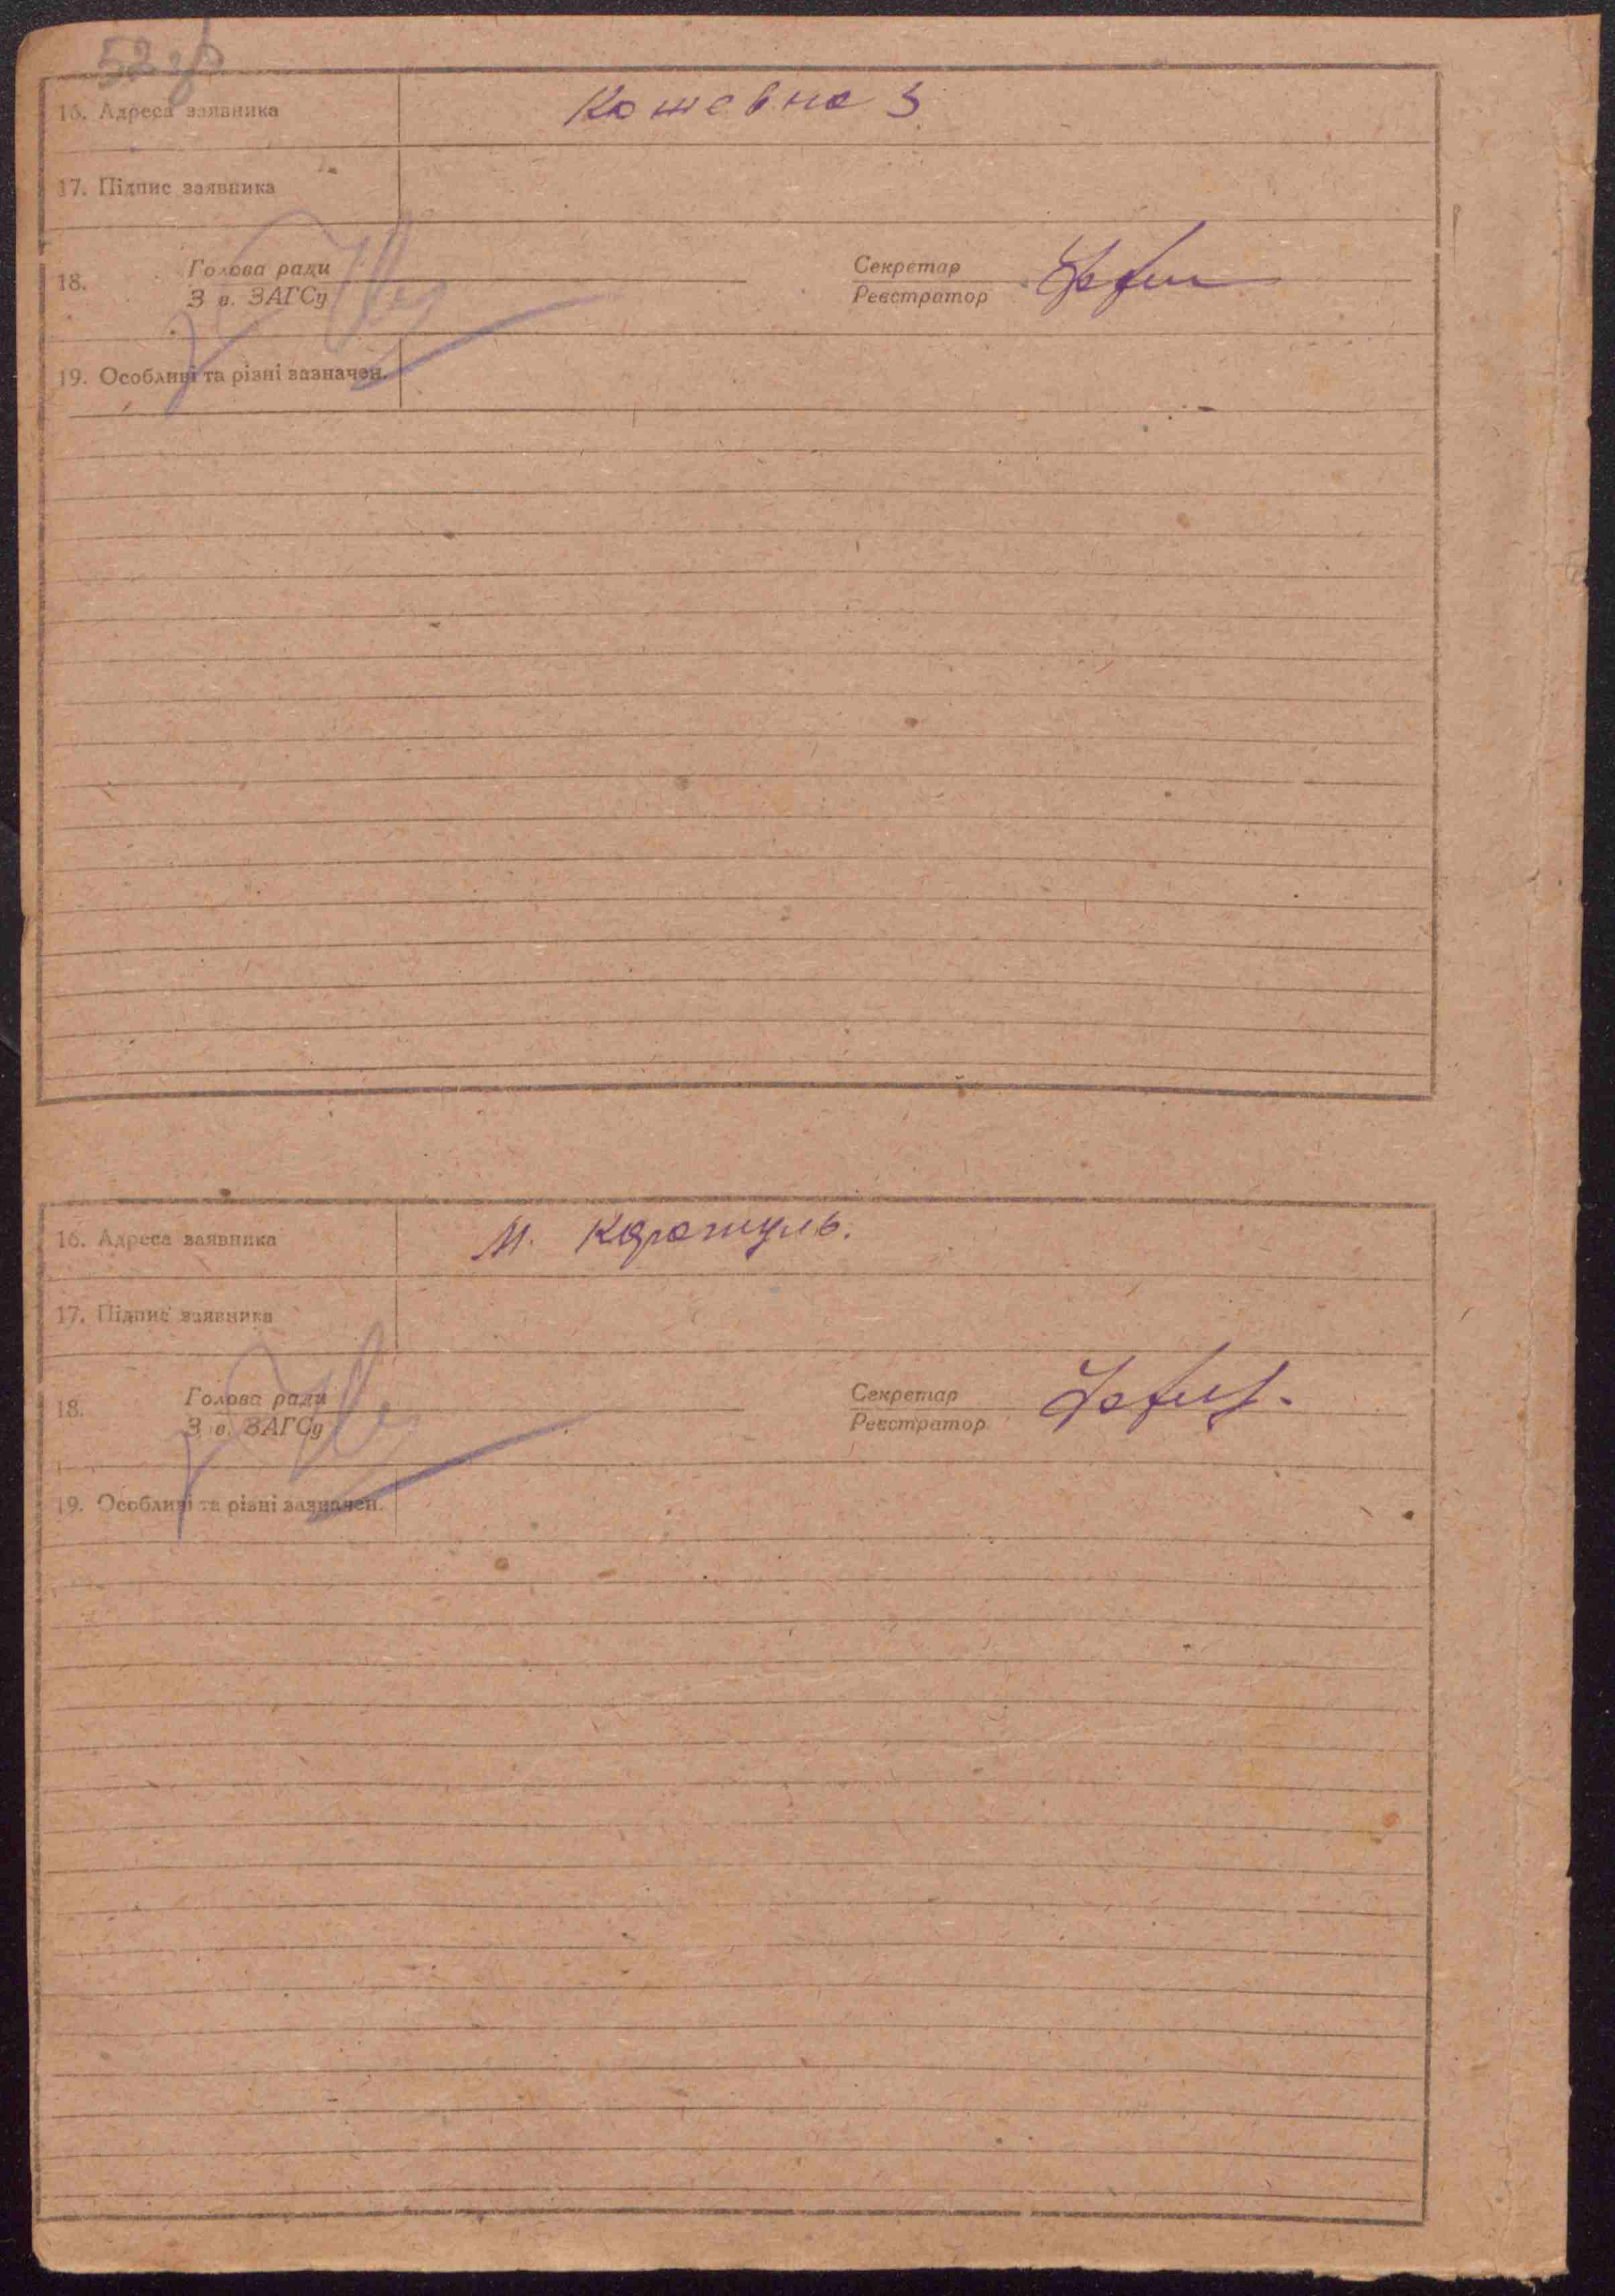 52 зв
16. Адреса заявника Кожевна 3
17. Підпис заявника
18. Голова ради Секретар
З в. ЗАГСу Реєстратор
19. Особливі та різні зазначен.
16. Адреса заявника М.
17. Підпис заявника
18. Голова ради Секретар
З в. ЗАГСу Реєстратор
19. Особливі та різні зазначен.